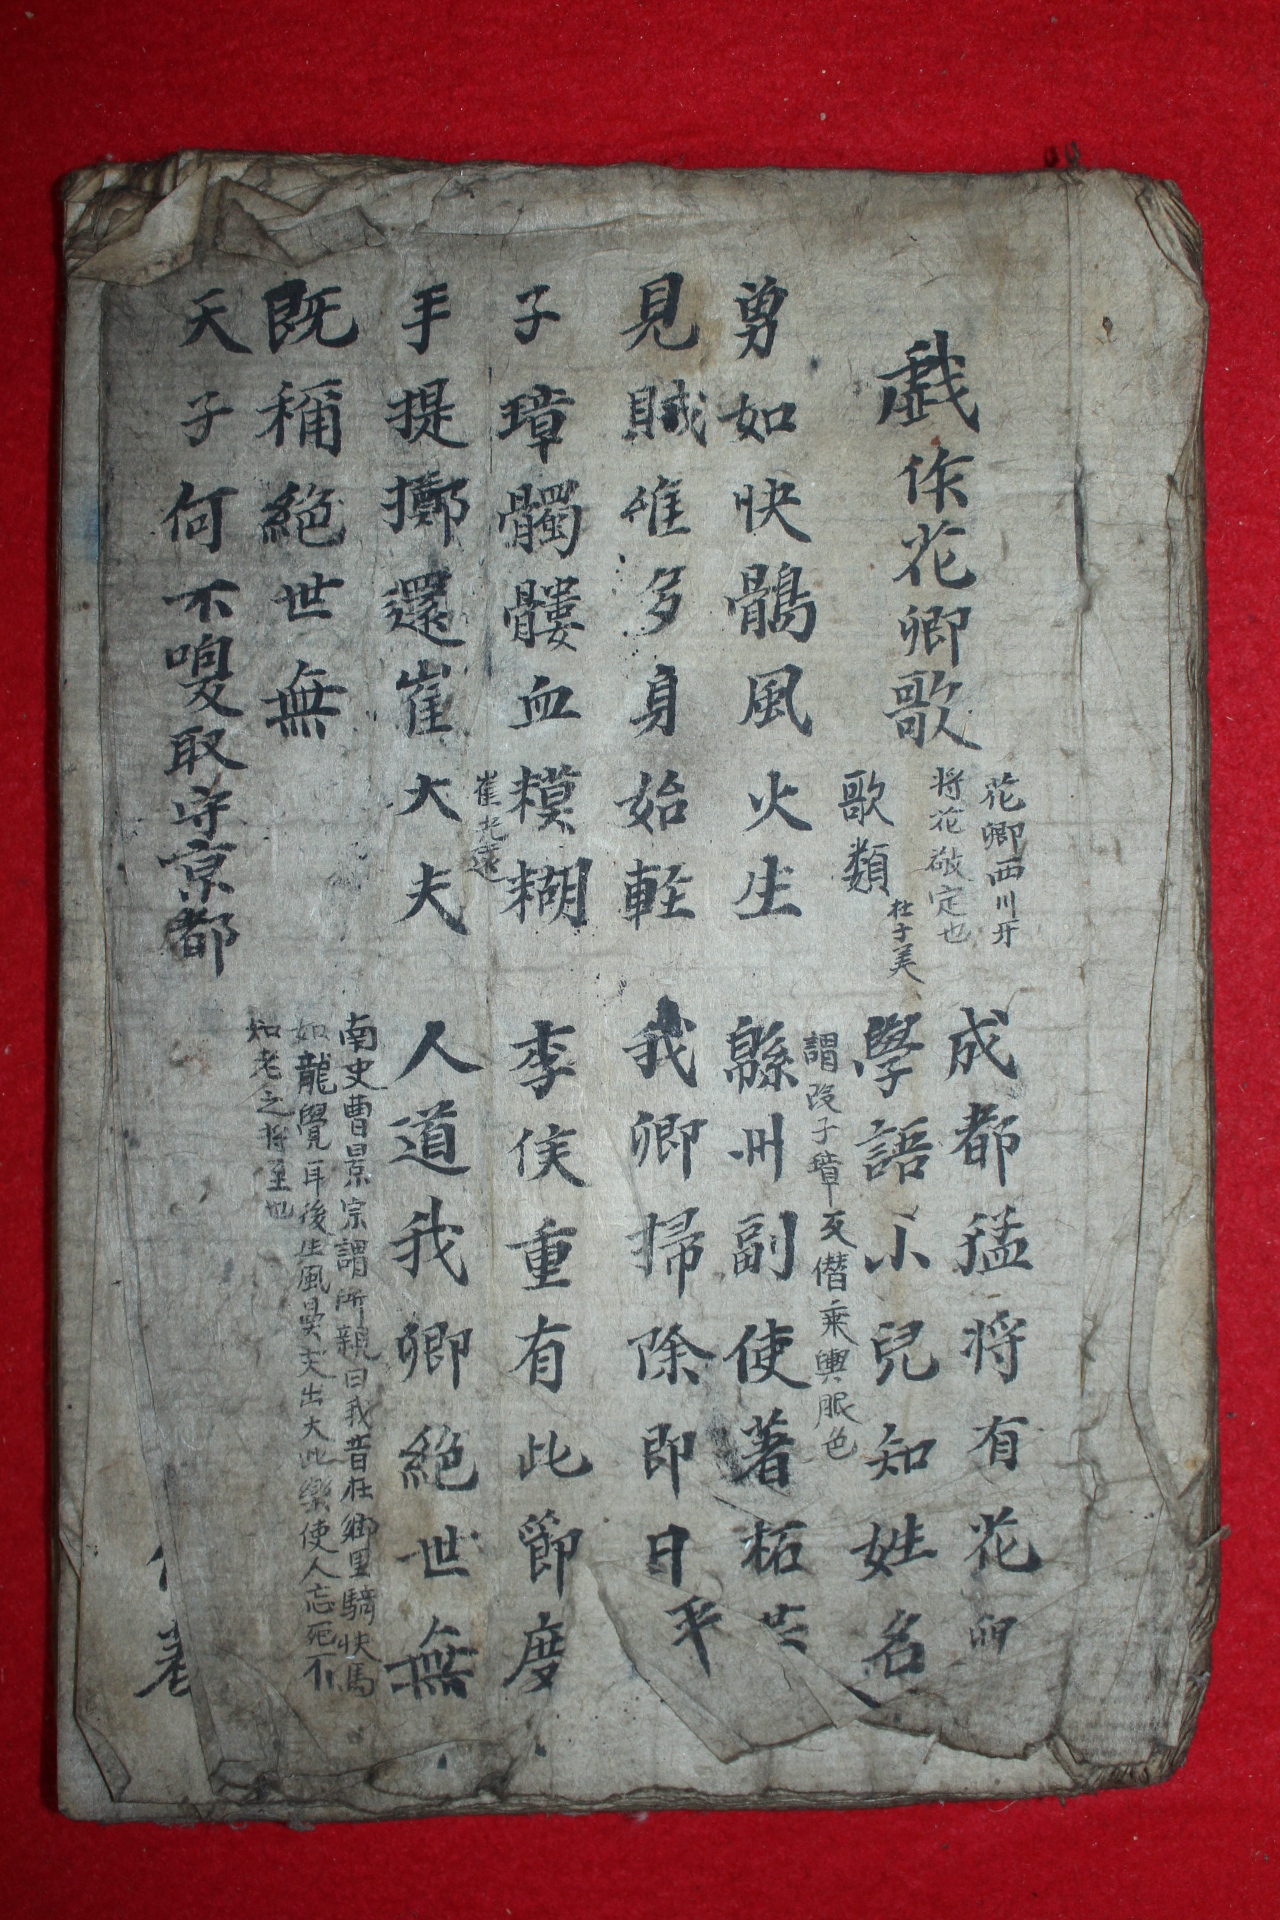 戱作花卿歌
花卿西川牙
将花敬定也
歌類
杜子美
成都猛将有花卿
學語小兒知姓名
勇如快鶻風火生
見賊惟多身始輊
謂段子璋反僣乘輿服色
緜州副使著柘
我卿掃除即日平
子璋髑髏血糢糊
崔光遠
手提擲還崔大夫
李侯重有此節度
人道我卿絶世無
既稱絶世無
天子何不喚取守京都
南史曹景宗謂所親曰我昔在鄉里騎快馬
如龍覺耳後生風鼻尖出火此樂使人忘死不
知老之將至也